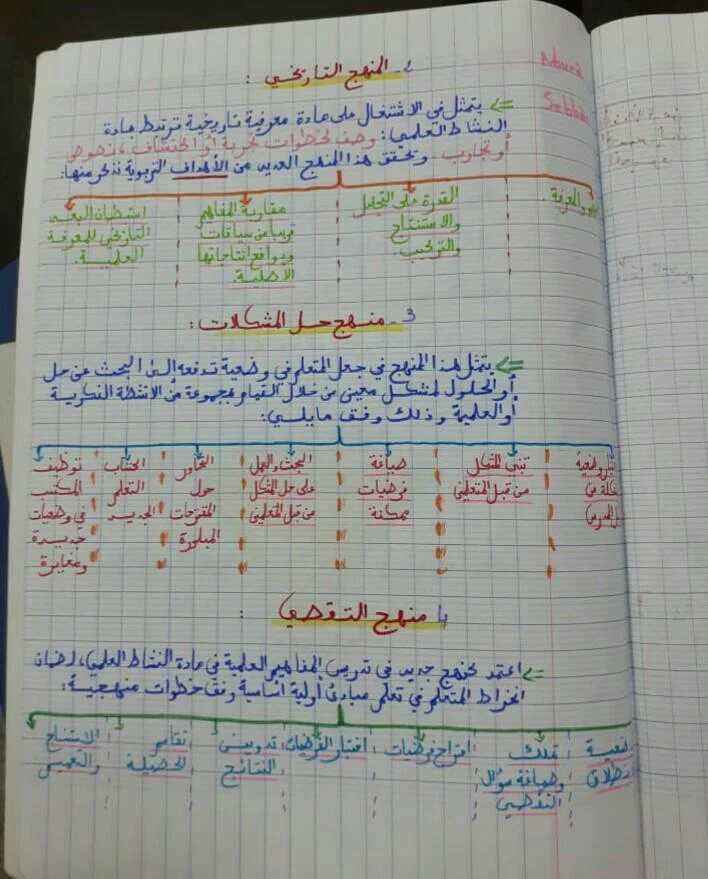 2- المنهج التاريخي :
Noura
Sebbar
⇐ يتمثل في الاشتغال على مادة معرفية تاريخية ترتبط بمادة
النشاط العلمي: وصف لخطوات تجربة أو اكتشاف، نصوص
أو تجارب. ويحقق هذا المنهج العديد من الأهداف التربوية نذكر منها:
والمعرفة.
القدرة على التحليل
والاستنتاج
والتركيب.
مقاربة المفاهيم
قريبا من سياقات
ودوافع انتاجاتها
الأصلية.
استبطان البعد
التاريخي للمعرفة
العلمية.
3- منهج حل المشكلات :
⇐ يتمثل هذا المنهج في جعل المتعلم في وضعية تدفعه إلى البحث عن حل
أو الحلول لمشكل معين من خلال القيام بمجموعة من الأنشطة الفكرية
أو العلمية وذلك وفق مايلي:
تبني المشكل
من قبل المتعلمين
صياغة
فرضيات
ممكنة
البحث والعمل
على حل المشكل
من قبل المتعلمين
التحاور
حول
المقترحات
المبلورة
اكتساب
التعلم
الجديد
توظيف
المكتسب
في وضعيات
جديدة
ومغايرة
4- منهج التقصي :
⇐ اعتمد كنهج جديد في تدريس المفاهيم العلمية في مادة النشاط العلمي، لضمان
انخراط المتعلم في تعلم مبادئ أولية أساسية وفق خطوات منهجية:
تملك
وصياغة سؤال
التقصي
اقتراح فرضيات
اختبار الفرضيات
تدوين
النتائج
تقاسم
الحصيلة
الاستنتاج
والتعميم